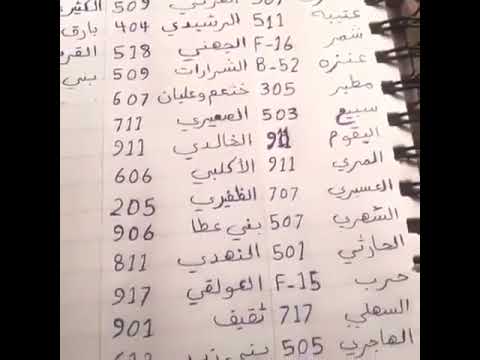 509
عتيبه 511 الرشيدي 404 بارق
شمر F-16 الجهني 518
عنزه B-52 الشرارات 509 بني
مطير 305 خثعم وعليان 607
سبيع 503 الصعيري 711
البقوم 911 الخالدي 911
المري 911 الأكلبي 606
العسيري 707 الظفيري 205
الشهري 507 بني عطا 906
الحارثي 501 النهدي 811
حرب F-15 العولقي 917
السهلي 717 ثقيف 901
الهاجري 505 بني